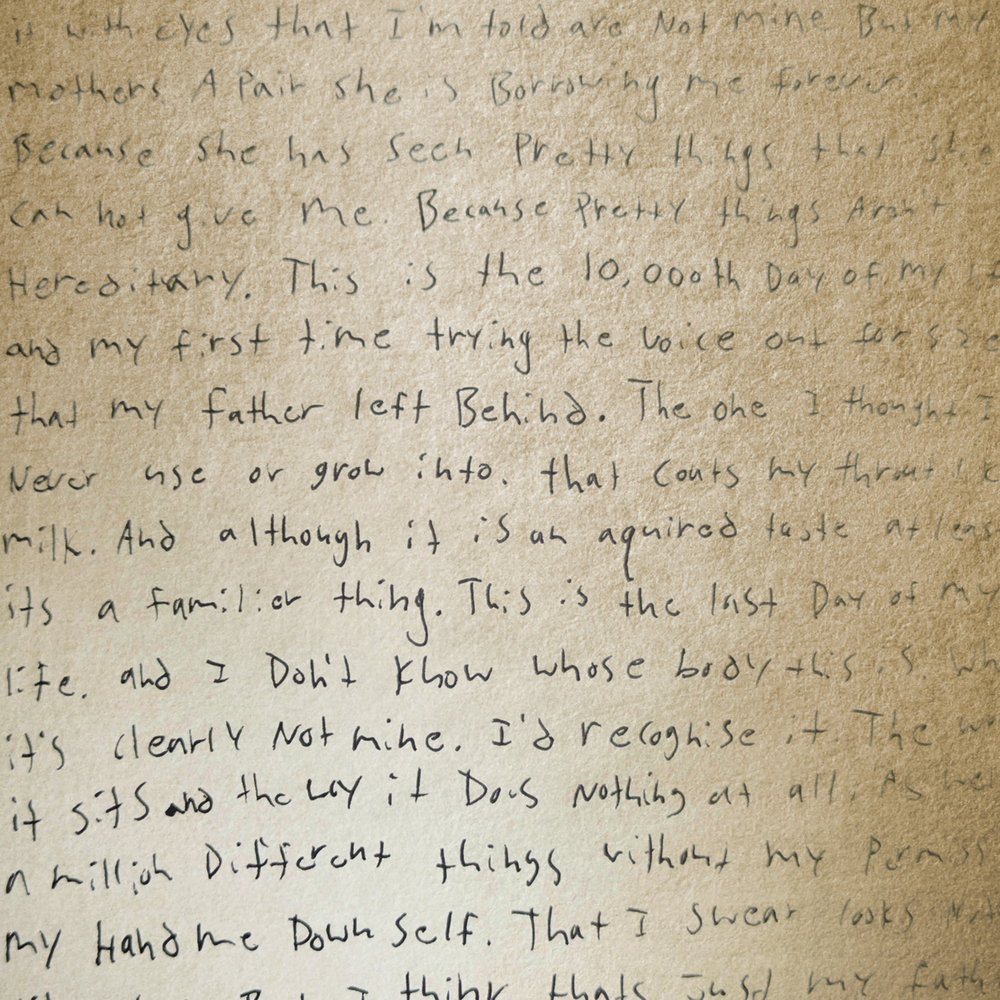 is with eyes that I'm told are Not mine But my
mothers. A Pair she is Borrowing me forever.
Because she has seen Pretty things that she
can not give me. Because Pretty things Arent
Hereditary. This is the 10,000th Day of my
and my first time trying the voice out for size
that my father left Behind. The one I thought I
Never use or grow into. that Coats my throat
milk. And although it is an aquired taste at
its a familier thing. This is the last Day of my
life. and I Don't know whose body this is.
it's clearly Not mine. I'd recognise it. The
it sits and the way it Does Nothing at all. As
a million Different things without my
my Hand me Down self. That I swear looks Not
But I think thats Just my